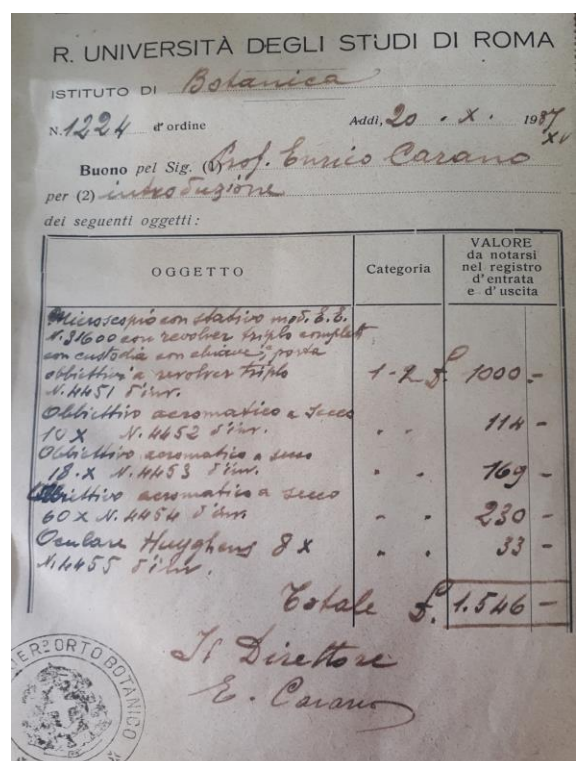 R. UNIVERSITÀ DEGLI STUDI DI ROMA
ISTITUTO DI Botanica
N. 1224 d'ordine Addì, 20 . X . 1937
XV
Buono pel Sig. (1) Prof. Enrico Carano
per (2) introduzione
dei seguenti oggetti :
OGGETTO Categoria VALORE
da notarsi
nel registro
d'entrata
e d'uscita
Microscopio con stativo mod. E.E.
N. 31600 con revolver triplo completo
con custodia con chiave, porta
obbiettivi a revolver triplo
N. 4451 d'inv. 1-2 £. 1000.-
Obbiettivo acromatico a secco
10 X N. 4452 d'inv. " " 114 -
Obbiettivo acromatico a secco
18.X N. 4453 d'inv. " " 169 -
Obbiettivo acromatico a secco
60 X N. 4454 d'inv. " " 230 -
Oculare Huyghens 8 X " " 33 -
N. 4455 d'inv.
Totale £. 1.546 -
Il Direttore
E. Carano
ORTO BOTANICO